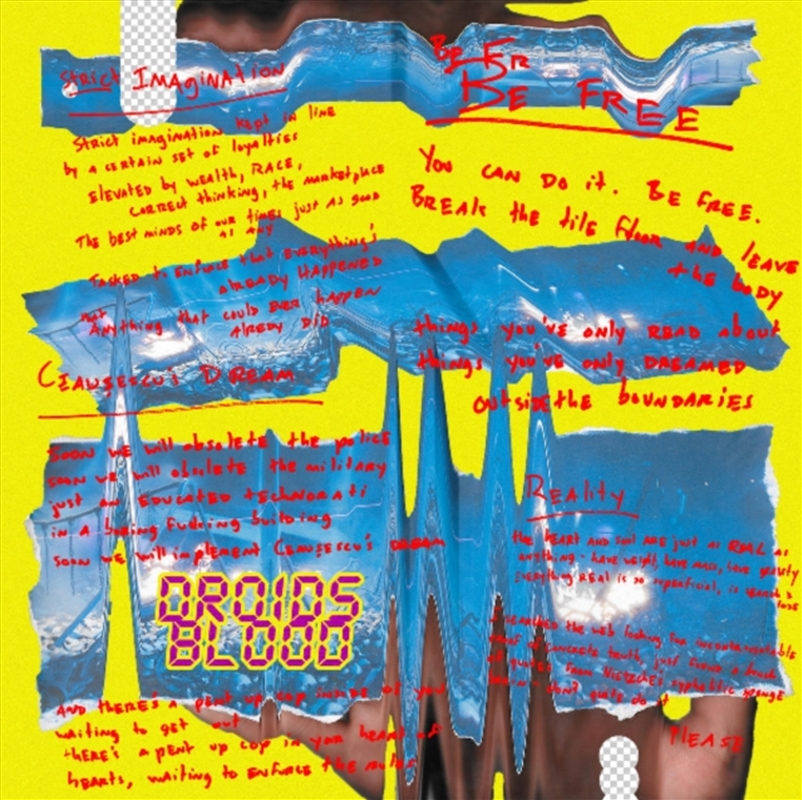 Strict IMAgiNATION
Strict imagination kept in line
by a certain set of loyalties
Elevated by wealth, RACE,
correct thinking, the marketplace
The best minds of our times just as good
as any
Tasked to Enforce that everything's
alREADY HAPPENED
that
Anything that could EVER happen
AlREDY DiD
CEAUSESCU'S DREAM
SOON WE will obsolete the police
soon we will obsolete the military
just an EDUCATED tECHNORATi
in a boring fucking building
soon we will implement CEAUSESCU'S DREAM
DROIDS
BLOOD
AND thERE'S a pent up cop inside of you
waiting to get out
thERE'S a pent up cop in your heart of
hearts, waiting to ENFORCE the rules
BE FR
BE FREE
You CAN DO it. BE FREE.
BREAK the tile floor AND lEAVE
the body
things you've only READ about
things you've only DREAMED
outside the bOUNDARIES
Reality
the HEART AND Soul ARE just as REAL as
anything - have weight, have mass, have gravity
Everything REAL is so superficial, is
I searched the web looking for incontrovertible
proof of concrete truth, just found a bunch
of quotes from Nietzche's syphilitic sponge
brain - don't quite do it
PlEASE